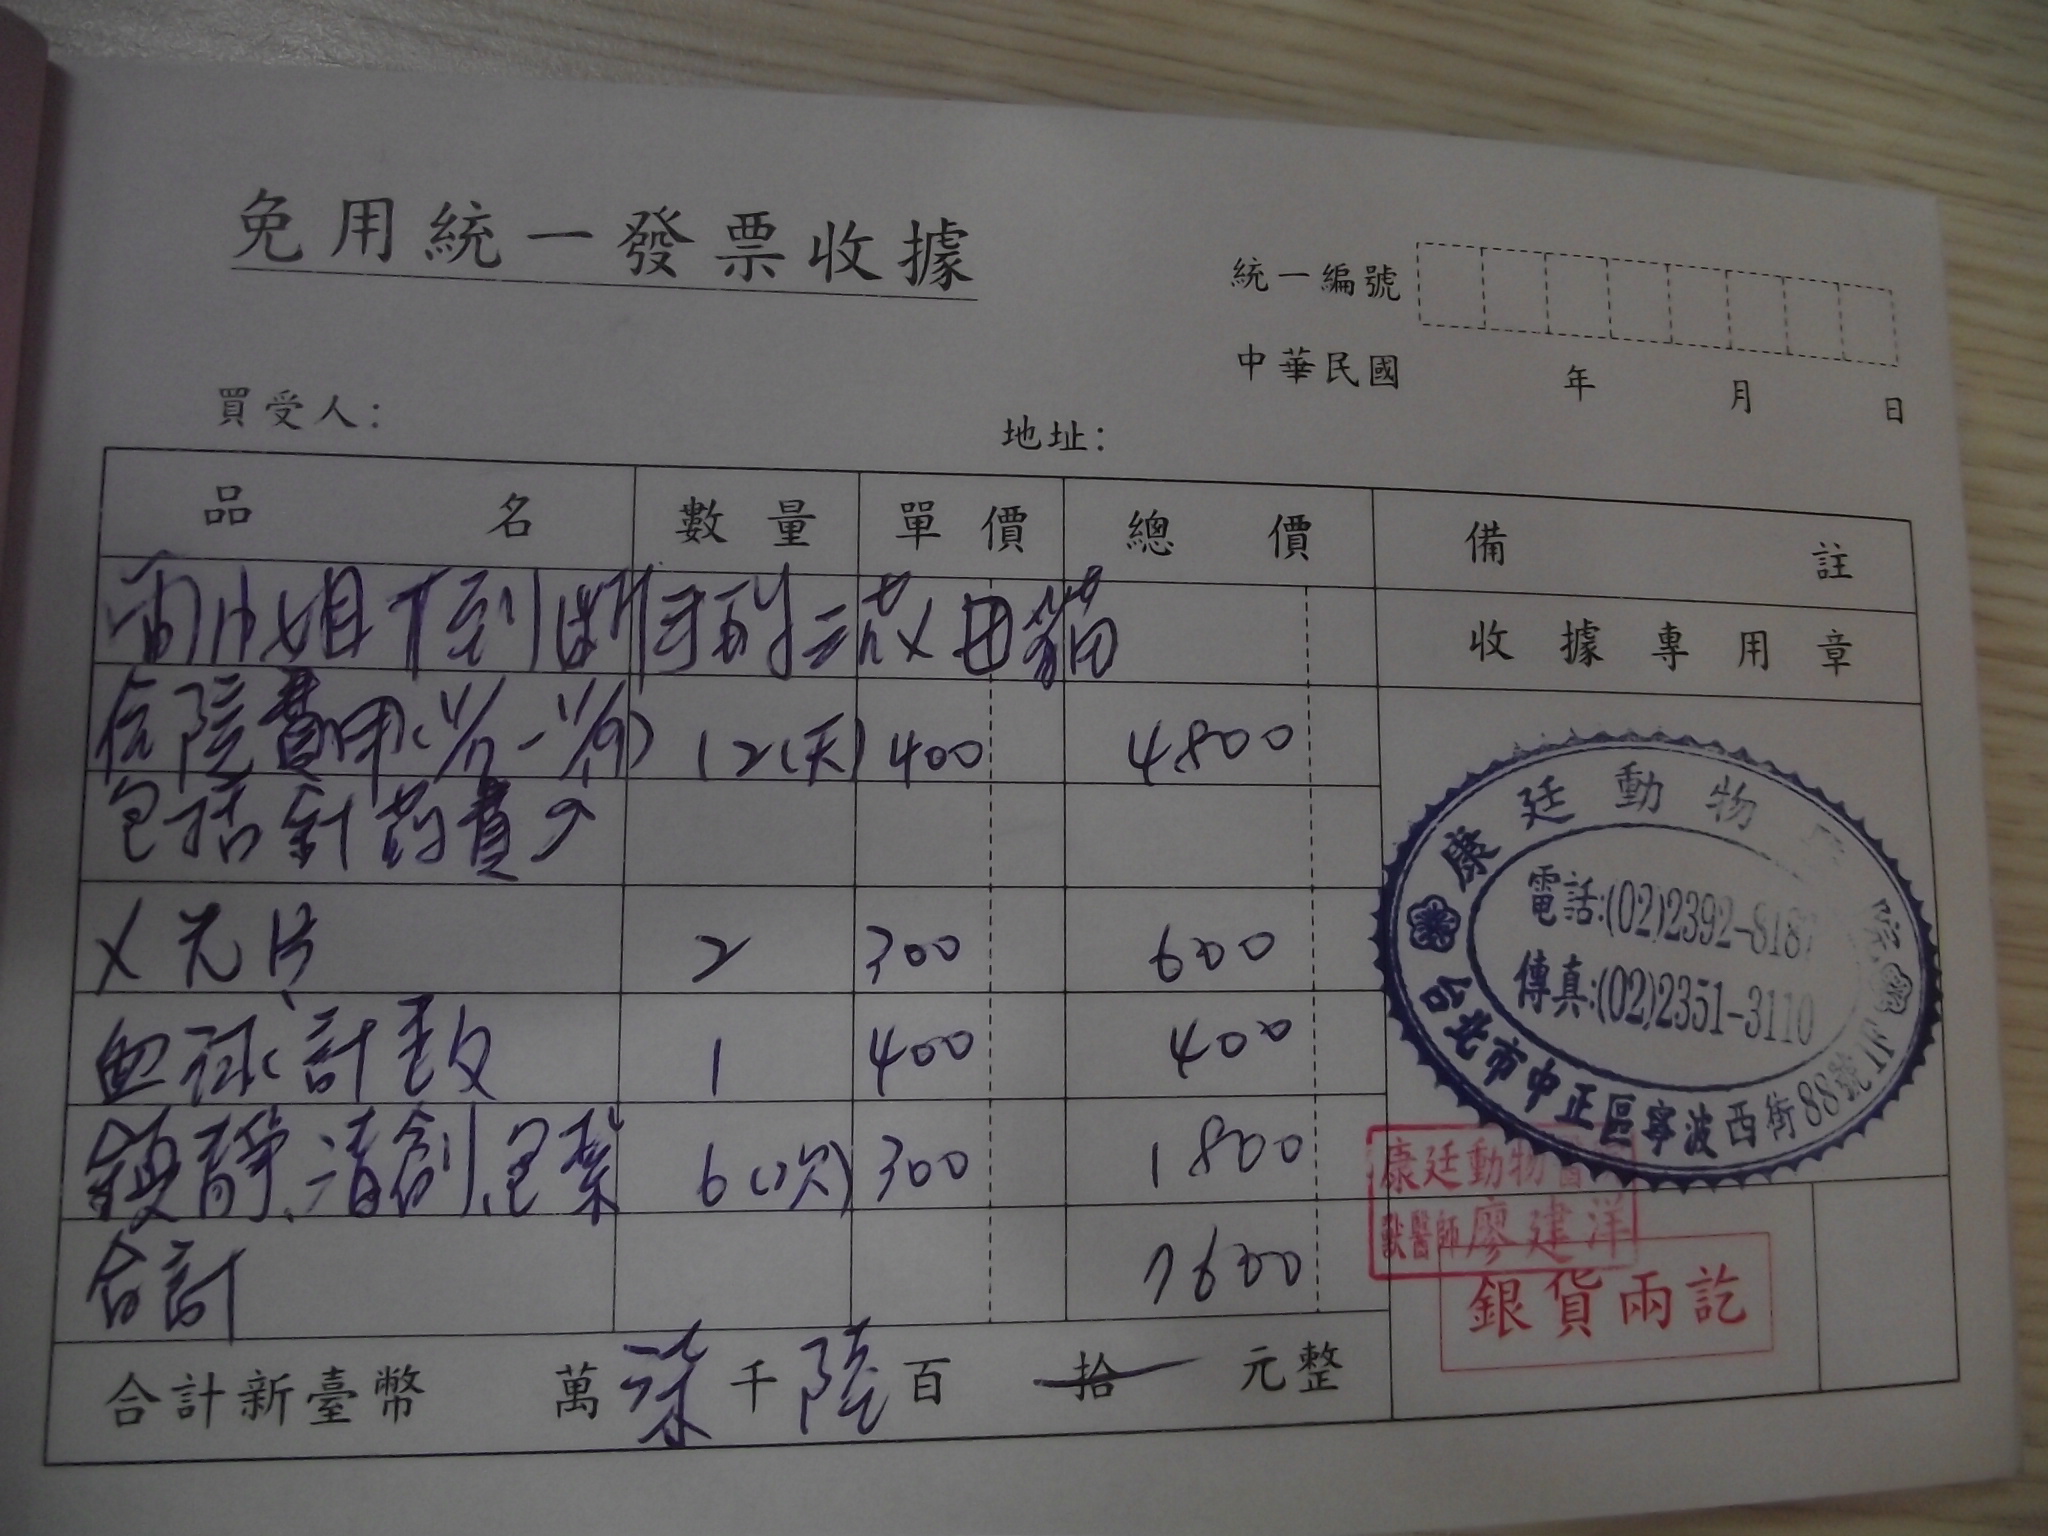 免用統一發票收據
統一編號
中華民國 年 月 日
買受人：
地址：
品名 數量 單價 總價 備註
收據專用章
住院費用 12(天) 400 4800
包括針药費
X光片 2 300 600
血球計数 1 400 400
鎮靜、清創、包紮 6(次) 300 1800
合計 7600
合計新臺幣 萬柒千陸百拾元整
康廷動物
電話:(02)2392-818
傳真:(02)2351-3110
台北市中正區寧波西街88號
康廷動物醫
獸醫師廖建洋
銀貨兩訖